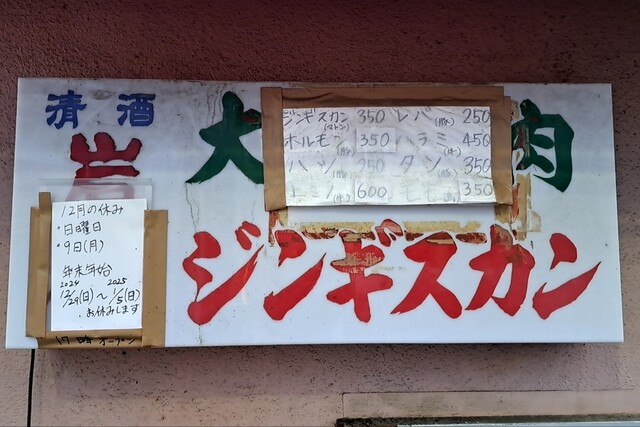 清酒
岩
大
肉
ジンギスカン
ジンギスカン(マトン) 350 レバ(豚) 250
ホルモン(豚) 350 ハラミ(牛) 450
ハツ(豚) 250 タン(豚) 350
ミノ(牛) 600 350
12月の休み
・日曜日
・9日(月)
年末年始
2024 2025
12/29(日)～1/5(日)
お休みします
17時オープン